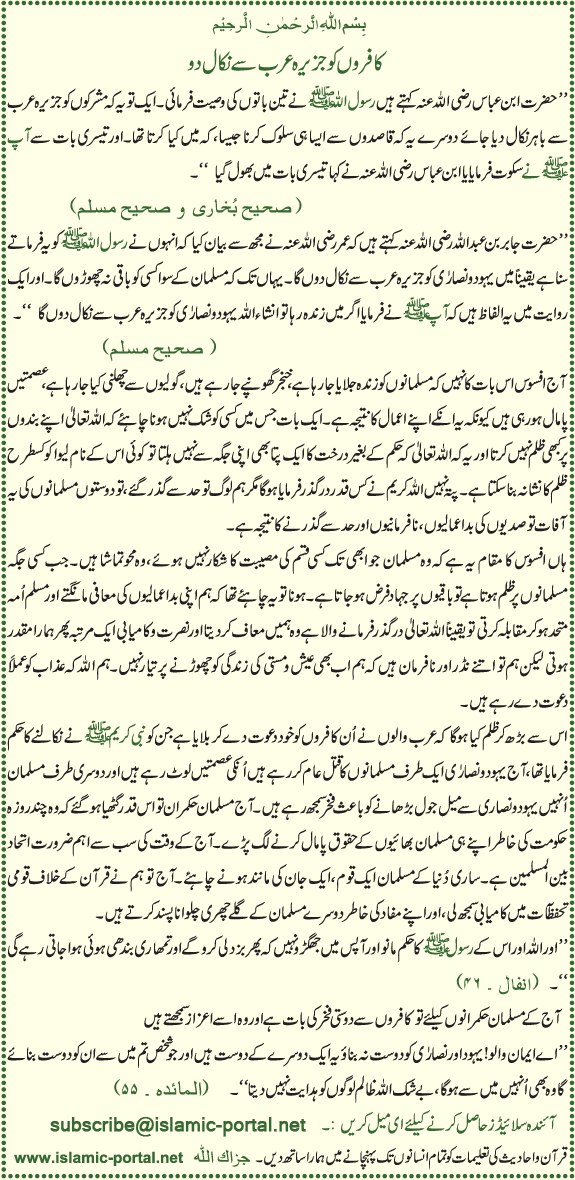 بِسْمِ اللهِ الرَّحْمٰنِ الرَّحِيْمِ
کافروں کو جزیرہ عرب سے نکال دو
’’حضرت ابن عباس رضی اللہ عنہ کہتے ہیں رسول اللہ ﷺ نے تین باتوں کی وصیت فرمائی۔ ایک تو یہ کہ مشرکوں کو جزیرہ عرب
سے باہر نکال دیا جائے دوسرے یہ کہ قاصدوں سے ایسا ہی سلوک کرنا جیسا، کہ میں کیا کرتا تھا۔ اور تیسری بات سے آپ
ﷺ نے سکوت فرمایا یا ابن عباس رضی اللہ عنہ نے کہا تیسری بات میں بھول گیا ‘‘۔
( صحیح بُخاری و صحیح مسلم )
’’حضرت جابر بن عبداللہ رضی اللہ عنہ کہتے ہیں کہ عمر رضی اللہ عنہ نے مجھ سے بیان کیا کہ انہوں نے رسول اللہ ﷺ کو یہ فرماتے
سنا ہے یقیناً میں یہود و نصارٰی کو جزیرہ عرب سے نکال دوں گا۔ یہاں تک کہ مسلمان کے سوا کسی کو باقی نہ چھوڑوں گا۔ اور ایک
روایت میں یہ الفاظ ہیں کہ آپ ﷺ نے فرمایا اگر میں زندہ رہا تو انشاء اللہ یہود و نصارٰی کو جزیرہ عرب سے نکال دوں گا ‘‘۔
( صحیح مسلم )
آج افسوس اس بات کا نہیں کہ مسلمانوں کو زندہ جلایا جا رہا ہے، خنجر گھونپے جا رہے ہیں، گولیوں سے چھلنی کیا جا رہا ہے، عصمتیں
پامال ہو رہی ہیں کیونکہ یہ انکے اپنے اعمال کا نتیجہ ہے۔ ایک بات جس میں کسی کو شک نہیں ہونا چاہئے کہ اللہ تعالٰی اپنے بندوں
پر کبھی ظلم نہیں کرتا اور یہ کہ اللہ تعالٰی کہ حکم کے بغیر درخت کا ایک پتا بھی اپنی جگہ سے نہیں ہلتا تو کوئی اس کے نام لیوا کو کسطرح
ظلم کا نشانہ بنا سکتا ہے۔ پتہ نہیں اللہ کریم نے کس قدر درگذر فرمایا ہوگا مگر ہم لوگ تو حد سے گذر گئے، تو دوستوں مسلمانوں کی یہ
آفات تو صدیوں کی بداعمالیوں، نافرمانیوں اور حد سے گذرنے کا نتیجہ ہے۔
ہاں افسوس کا مقام یہ ہے کہ وہ مسلمان جو ابھی تک کسی قسم کی مصیبت کا شکار نہیں ہوئے، وہ محو تماشا ہیں۔ جب کسی جگہ
مسلمانوں پر ظلم ہوتا ہے تو باقیوں پر جہاد فرض ہو جاتا ہے۔ ہونا تو یہ چاہئے تھا کہ ہم اپنی بداعمالیوں کی معافی مانگتے اور مسلم اُمہ
متحد ہو کر مقابلہ کرتی تو یقیناً اللہ تعالٰی درگذر فرمانے والا ہے وہ ہمیں معاف کر دیتا اور نصرت و کامیابی ایک مرتبہ پھر ہمارا مقدر
ہوتی لیکن ہم تو اتنے نڈر اور نافرمان ہیں کہ ہم اب بھی عیش و مستی کی زندگی کو چھوڑنے پر تیار نہیں۔ ہم اللہ کہ عذاب کو عملاً
دعوت دے رہے ہیں۔
اس سے بڑھ کر ظلم کیا ہوگا کہ عرب والوں نے اُن کافروں کو خود دعوت دے کر بلایا ہے جن کو نبی کریم ﷺ نے نکالنے کا حکم
فرمایا تھا، آج یہود و نصارٰی ایک طرف مسلمانوں کا قتل عام کر رہے ہیں اُنکی عصمتیں لوٹ رہے ہیں اور دوسری طرف مسلمان
اُنہیں یہود و نصاری سے میل جول بڑھانے کو باعث فخر سمجھ رہے ہیں۔ آج مسلمان حکمران تو اس قدر گھٹیا ہو گئے کہ وہ چند روزہ
حکومت کی خاطر اپنے ہی مسلمان بھائیوں کے حقوق پامال کرنے لگ پڑے۔ آج کے وقت کی سب سے اہم ضرورت اتحاد
بین المسلمین ہے۔ ساری دُنیا کے مسلمان ایک قوم، ایک جان کی مانند ہونے چاہئے۔ آج تو ہم نے قرآن کے خلاف قومی
تحفظات میں کامیابی سمجھ لی، اور اپنے مفاد کی خاطر دوسرے مسلمان کے گلے چھری چلوانا پسند کرتے ہیں۔
’’اور اللہ اور اس کے رسول ﷺ کا حکم مانو اور آپس میں جھگڑو نہیں کہ پھر بزدلی کرو گے اور تمھاری بندھی ہوئی ہوا جاتی رہے گی
‘‘۔ (انفال ۔ ۴۶)
آج کے مسلمان حکمرانوں کیلئے تو کافروں سے دوستی فخر کی بات ہے اور وہ اسے اعزاز سمجھتے ہیں
’’اے ایمان والو! یہود اور نصارٰی کو دوست نہ بناؤ یہ ایک دوسرے کے دوست ہیں اور جو شخص تم میں سے ان کو دوست بنائے
گا وہ بھی اُنہیں میں سے ہوگا، بے شک اللہ ظالم لوگوں کو ہدایت نہیں دیتا‘‘۔ (المائدہ ۔ ۵۵)
آئندہ سلائیڈز حاصل کرنے کیلئے ای میل کریں :۔ subscribe@islamic-portal.net
قرآن و احادیث کی تعلیمات کو تمام انسانوں تک پہنچانے میں ہمارا ساتھ دیں۔ جزاك الله www.islamic-portal.net